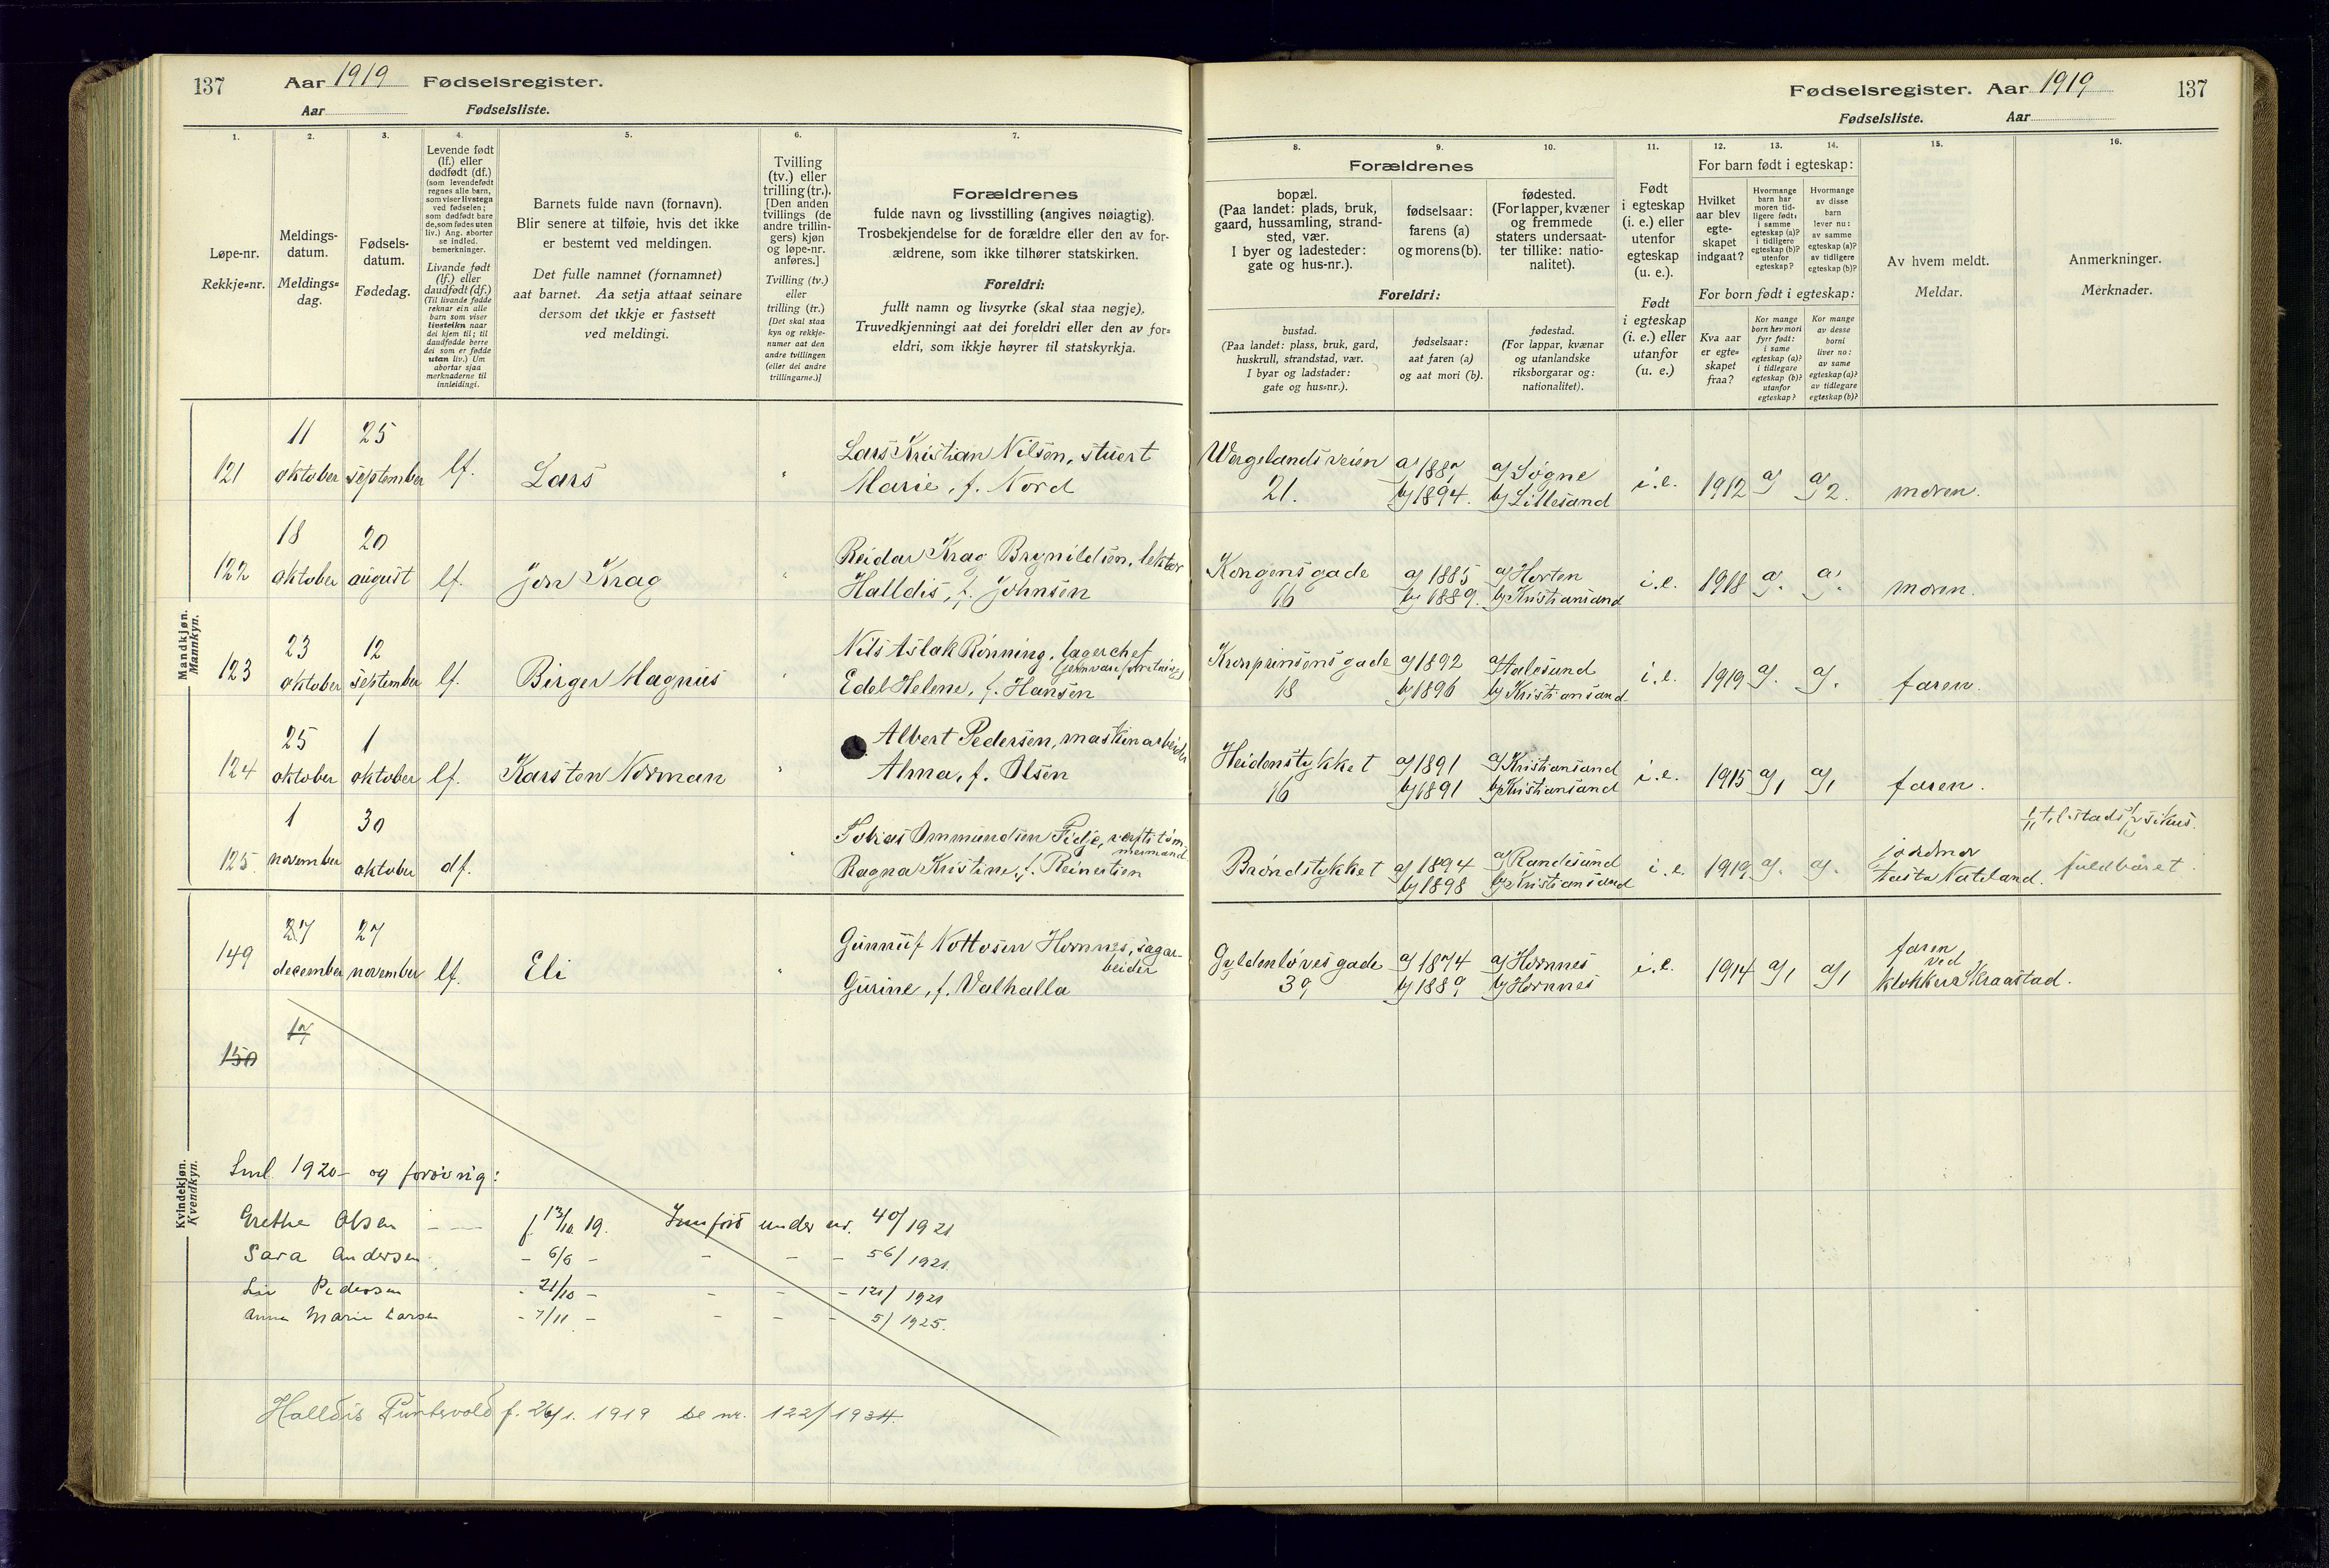 137
Aar 1919 Fødselsregister.
Aar Fødselsliste.
1. 2. 3. 4. 5. 6. 7.
Løpe-nr.
Rekkje-nr.
Meldings-
datum.
Meldings-
dag.
Fødsels-
datum.
Fødedag.
Levende født
(lf.) eller
dødfødt (df.)
(som levendefødt
regnes alle barn,
som viser livstegn
ved fødselen;
som dødfødt bare
de, som fødes uten
liv.) Ang. aborter
se indled.
bemerkninger.
Livande født
(lf.) eller
daudfødt (df.)
(Til livande fødde
reknar ein alle
barn som viser
livsteikn naar
dei kjem til; til
daudfødde berre
dei som er fødde
utan liv.) Um
abortar sjaa
merknaderne til
innleidingi.
Barnets fulde navn (fornavn).
Blir senere at tilføie, hvis det ikke
er bestemt ved meldingen.
Det fulle namnet (fornamnet)
aat barnet. Aa setja attaat seinare
dersom det ikkje er fastsett
ved meldingi.
Tvilling
(tv.) eller
trilling (tr.).
[Den anden
tvillings (de
andre trillin-
gers) kjøn
og løpe-nr.
anføres.]
Tvilling (tv.)
eller
trilling (tr.)
[Det skal staa
kyn og rekkje-
numer aat den
andre tvillingen
(eller dei andre
trillingarne.)]
Forældrenes
fulde navn og livsstilling (angives nøiagtig).
Trosbekjendelse for de forældre eller den av for-
ældrene, som ikke tilhører statskirken.
Foreldri:
fullt namn og livsyrke (skal staa nøgje).
Truvedkjenningi aat dei foreldri eller den av for-
eldri, som ikkje høyrer til statskyrkja.
Mandkjøn.
Mannkyn.
121 11 oktober 25 september lf. Lars
Lars Kristian Nilsen, stuert
Marie, f. Nord
122 18 oktober 20 august lf. Jon Krag
Reidar Krag Brynildsen, lektor
Halldis, f. Johnsen
123 23 oktober 12 september lf. Birger Magnus
Nils Aslak Rönning, lagerchef
(jernvareforretning)
Edel Helene, f. Hansen
124 25 oktober 1 oktober lf. Karsten Norman
Albert Pedersen, maskinarbeider
Alma, f. Olsen
125 1 november 30 oktober df.
Tobias Ommundsen Fidje,
Ragna Kristine, f. Reinertsen
Kvindekjøn.
Kvendkyn.
149 27 december 27 november lf. Eli
Gunnuf Nottosen Hornnes, sagar-
beider
Gurine, f. Valhalla
17
150
Sml. 1920 - og forøvrig:
Grethe Olsen f. 13/10 19. Innført under nr. 40/1921
Sara Andersen - 6/6 - - - - 56/1921.
Liv Pedersen - 21/10 - - - - 121/1921
Anna Marie Larsen - 7/11 - - - - 5/1925.
Halldis Puntervold f. 26/1. 1919 se nr. 122/1934.
Fødselsregister. Aar 1919
137
Fødselsliste. Aar
8. 9. 10. 11. 12. 13. 14. 15. 16.
Forældrenes
bopæl.
(Paa landet: plads, bruk,
gaard, hussamling, strand-
sted, vær.
I byer og ladesteder:
gate og hus-nr.).
fødselsaar:
farens (a)
og morens (b).
fødested.
(For lapper, kvæner
og fremmede
staters undersaat-
ter tillike: natio-
nalitet).
Foreldri:
bustad.
(Paa landet: plass, bruk, gard,
huskrull, strandstad, vær.
I byar og ladstader:
gate og hus-nr.).
fødselsaar:
aat faren (a)
og aat mori (b).
fødestad.
(For lappar, kvænar
og utanlandske
riksborgarar og:
nationalitet).
Født
i egteskap
(i. e.) eller
utenfor
egteskap
(u. e.).
Født
i egteskap
(i. e.) eller
utanfor
(u. e.)
For barn født i egteskap:
Hvilket
aar blev
egte-
skapet
indgaat?
Hvormange
barn har
moren tid-
ligere født:
i samme
egteskap (a)?
i tidligere
egteskap (b)?
utenfor
egteskap?
Hvormange
av disse
barn
lever nu:
av samme
egteskap (a)?
av tidligere
egteskap (b)?
For born født i egteskap:
Kva aar
er egte-
skapet
fraa?
Kor mange
born hev mori
fyrr født:
i same
egteskap (a)?
i tidlegare
egteskap (b)?
utanfor
egteskap?
Kor mange
av desse
borni
liver no:
av same
egteskap (a)?
av tidlegare
egteskap (b)?
Av hvem meldt.
Meldar.
Anmerkninger.
Merknader.
Wergelandsveien 21. a) 1887 b) 1894. a) Søgne b) Lillesand i.e. 1912 a) a) 2. moren.
Kongensgade 16 a) 1885 b) 1889. a) Horten b) Kristiansand i.e. 1918 a). a). moren.
Kronprinsensgade 18 a) 1892 b) 1896 a) Aalesund b) Kristiansand i.e. 1919 a). a). faren.
Heidenstykket 16 a) 1891 b) 1891 a) Kristiansand b) Kristiansand i.e. 1915 a) 1 a) 1 faren.
Brøndstykket a) 1894 b) 1898 a) Randesund b) Kristiansand i.e. 1919 a). a). jordmor
fuldbåret
Gyldenløvesgade 39 a) 1874 b) 1889 a) Hornnes b) Hornnes i.e. 1914 a) 1 a) 1 faren
ved
klokker Skraastad.